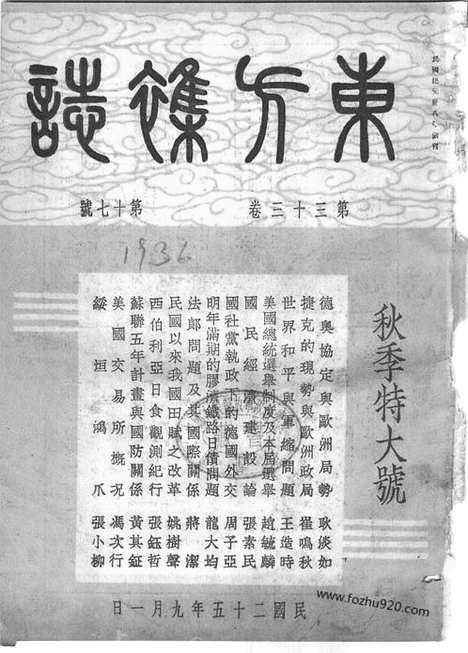 東方雜誌
第三十三卷
第十七號
1936
秋季特大號
德奧協定與歐洲局勢 耿淡如
捷克的現勢與歐洲政局 崔鳴秋
世界和平與軍縮問題 王造時
美國總統選舉制度及本屆選舉 趙毓麟
國民經濟建設論 張素民
國社黨執政下的德國外交 周子亞
明年滿期的膠濟鐵路日債問題 龍大均
法郎問題及其國際關係 蔣潔
民國以來我國田賦之改革 姚樹聲
西伯利亞日食觀測紀行 張鈺哲
蘇聯五年計畫與國防關係 黃其鉦
美國交易所概況 馮次行
綏垣鴻爪 張小柳
民國二十五年九月一日
www.fozhu920.com